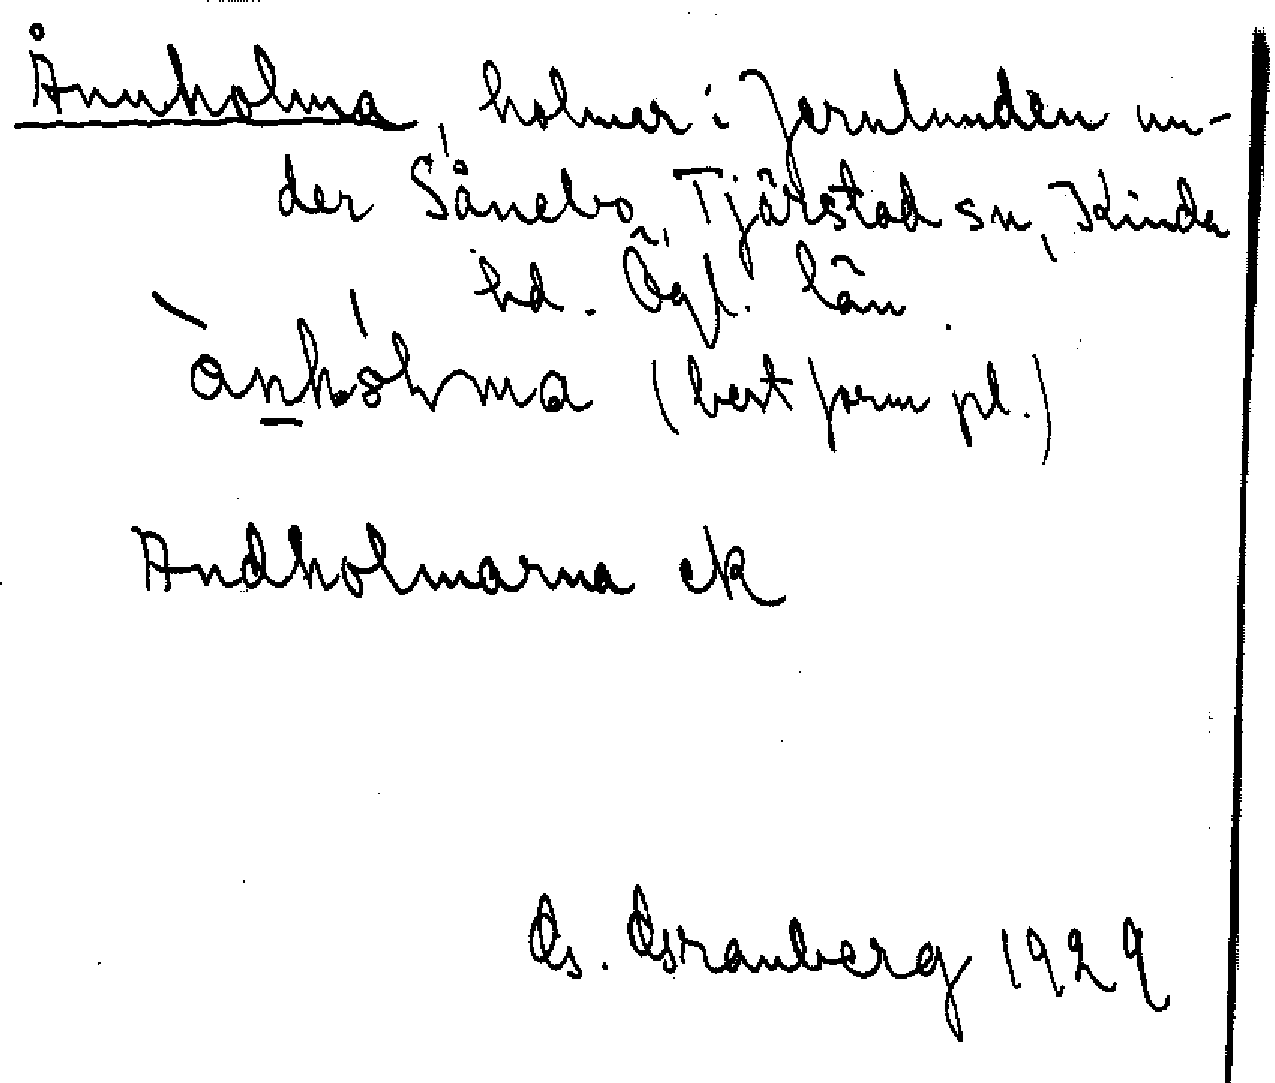 Ånnholma, holmar i Jernlunden un-
der Sånebo, Tjärstad sn, Kinda
hd. Ögl. län.
ànhólma (best form pl.)
Andholmarna ek
G. Granberg 1929